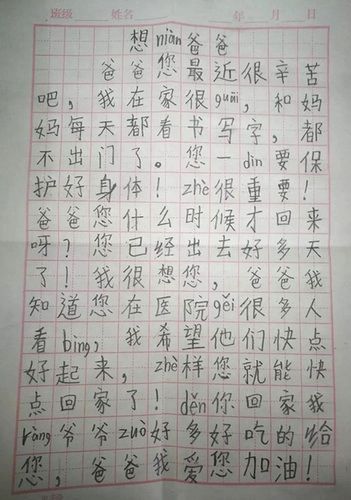 班级 姓名 年 月 日
想niàn爸爸
爸爸您最近很辛苦
吧,我在家很guāi,和妈
妈每天都看书写字,都
不出门了。您一din要保
护好身体!zhè很重要!
爸爸您什么时候才回来
呀?您已经出去好多天
了!我很想您,爸爸我
知道您在医院gěi很多人
看bìng,我希望他们快点
好起来,zhè样您就能快
点回家了!děn你回家我
ràng爷爷zuò好多好吃的给
您,爸爸我爱您加油!